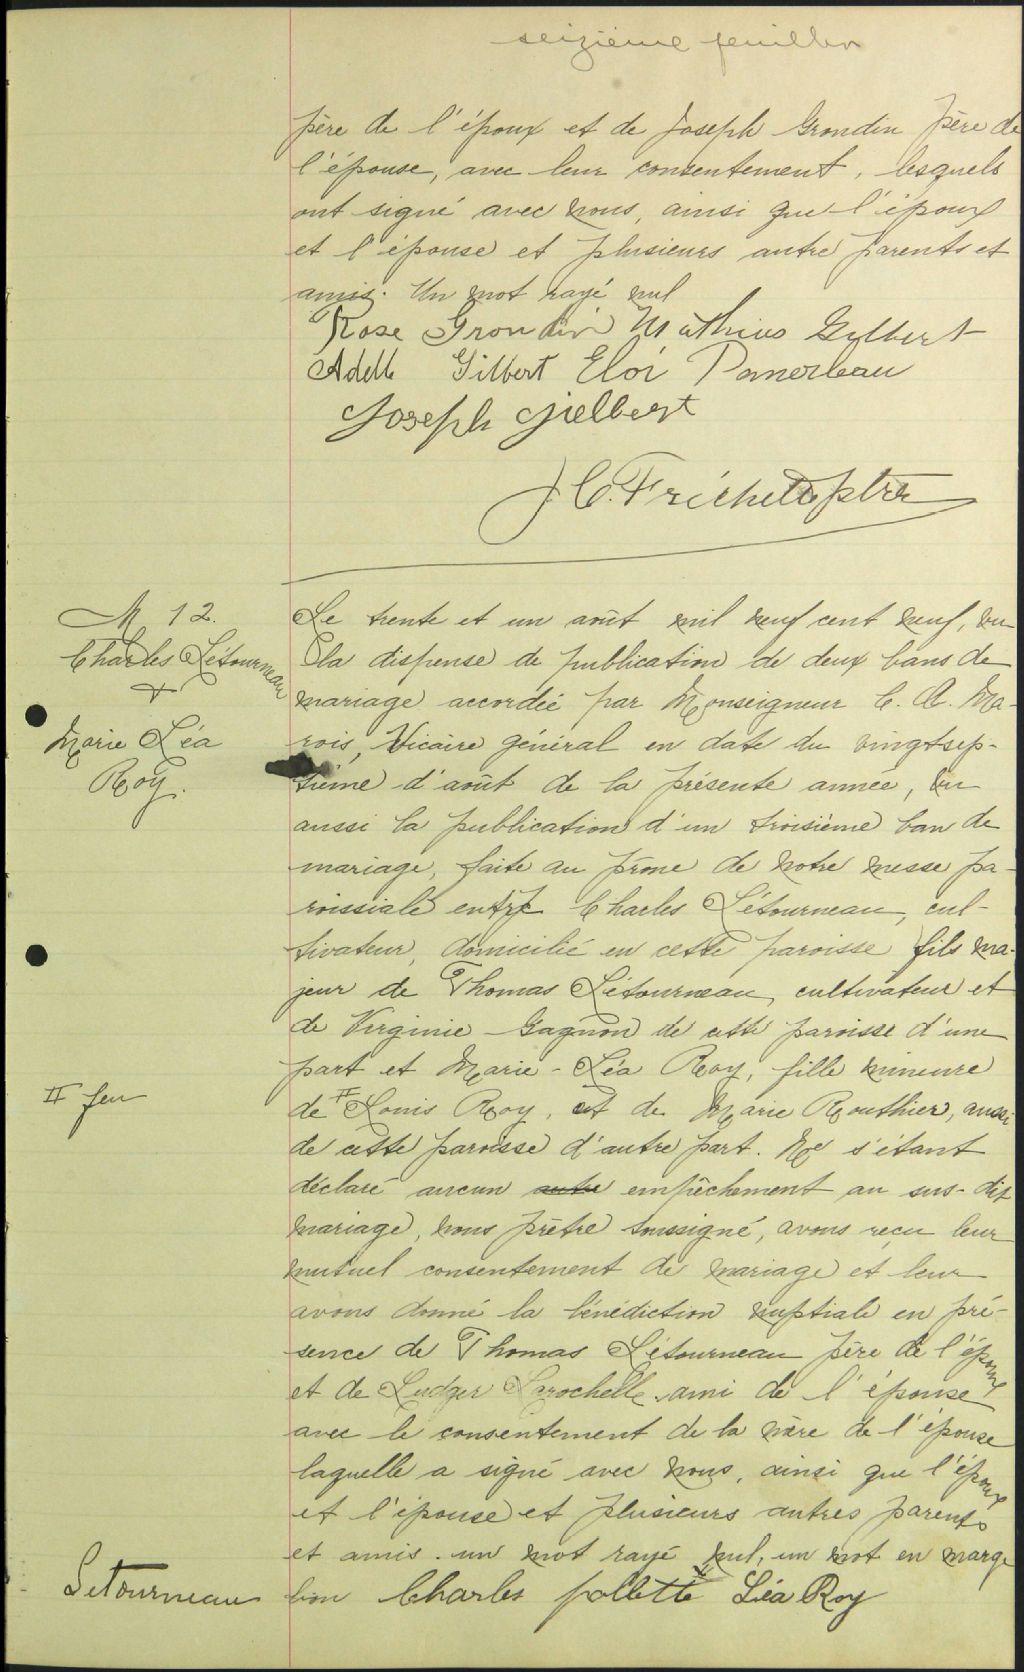 seizième feuillet
père de l'époux et de Joseph Grondin père de
l'épouse, avec leur consentement, lesquels
ont signé avec nous, ainsi que l'époux
et l'épouse et plusieurs autre parents et
amis. Un mot rayé nul
Rose Grondin Mathias Gilbert
Adelle Gilbert Eloi Pomerleau
Joseph Gielbert
J. C. Fréchette ptre
M 12.
Charles Létourneau
+
Marie Léa
Roy.
Le trente et un août mil neuf cent neuf, vu
la dispense de publication de deux bans de
mariage accordée par Monseigneur C. A. Ma-
rois, Vicaire général en date du vingtsep-
tième d'août de la présente année, vu
aussi la publication d'un troisième ban de
mariage, faite au prône de notre messe pa-
roissiale entre Charles Létourneau, cul-
tivateur, domicilié en cette paroisse fils ma-
jeur de Thomas Létourneau, cultivateur et
de Virginie Gagnon de cette paroisse d'une
part et Marie-Léa Roy, fille mineure
II feu
de II Louis Roy, et de Marie Routhier, aussi
de cette paroisse d'autre part. Ne s'étant
déclaré aucun autre empêchement au sus-dit
mariage, nous prêtre soussigné, avons reçu leur
mutuel consentement de mariage et leur
avons donné la bénédiction nuptiale en pré-
sence de Thomas Létourneau père de l'époux
et de Ludger Larochelle ami de l'épouse
avec le consentement de la mère de l'épouse
laquelle a signé avec nous, ainsi que l'époux
et l'épouse et plusieurs autres parents
et amis. un mot rayé nul, un mot en marge
bon Charles Léa Roy
Letourneau